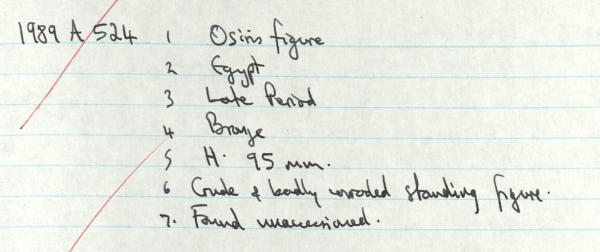 1989 A 524 1 Osiris figure
2 Egypt
3 Late Period
4 Bronze
5 H. 95 mm.
6 Crude & badly corroded standing figure.
7. Found unaccessioned.